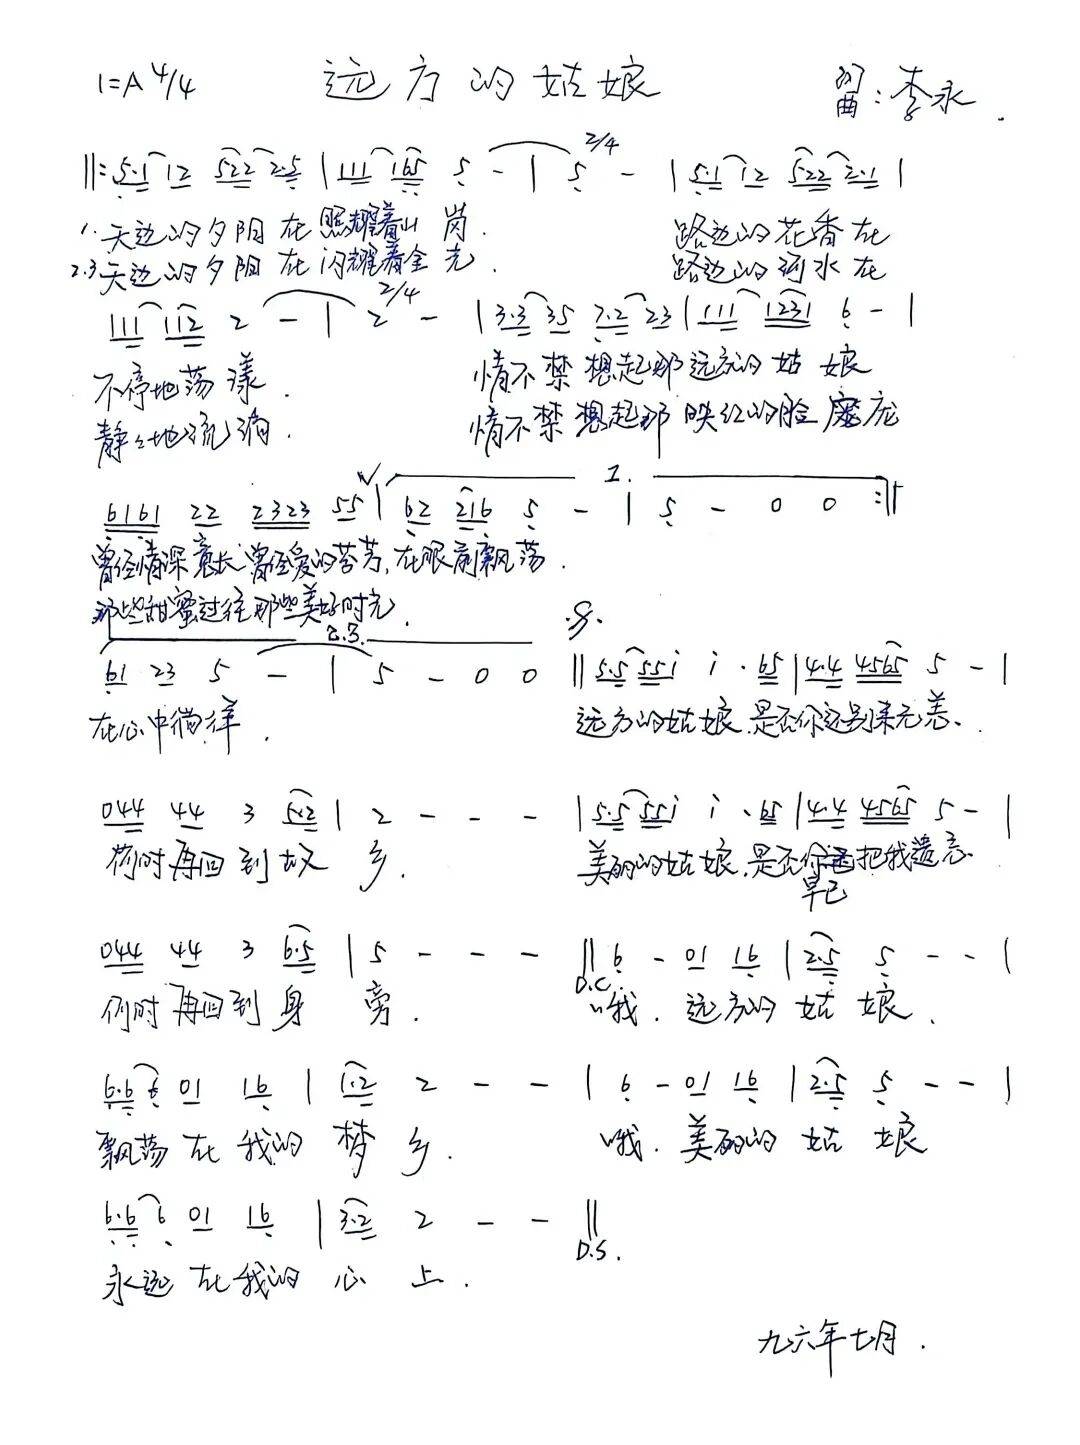 1=A 4/4 远方的姑娘 词曲:李永.
2/4
‖: 5·1 12 522 2·5 | 111 165 5 - | 5 - | 5·1 12 522 2·1 |
1. 天边的夕阳在照耀着山岗. 路边的花香在
2.3 天边的夕阳在闪耀着金光. 路边的河水在
2/4
111 112 2 - | 2 - | 3·3 35 7·2 23 | 111 1231 6 - |
不停地荡漾. 情不禁想起那远方的姑娘
静々地流淌. 情不禁想起那映红的脸庞
1.
6161 22 2323 55 | 62 216 5 - | 5 - 0 0 :‖
曾经情深意长曾经爱的芬芳,在眼前飘荡.
那些甜蜜过往那些美好时光.
2.3.
61 23 5 - | 5 - 0 0 ‖ 5·5 55i i · 65 | 4·4 4565 5 - |
在心中徜徉. 远方的姑娘.是否你这别来无恙.
044 44 3 5·2 | 2 - - - | 5·5 55i i · 65 | 4·4 4565 5 - |
何时再回到故乡. 美丽的姑娘.是否你把我遗忘
早已
044 44 3 6·5 | 5 - - - ‖ 6 - 01 16 | 2·5 5 - - |
D.C.
何时再回到身旁. 哦.远方的姑娘.
6·6 6 01 16 | 1·2 2 - - | 6 - 01 16 | 2·5 5 - - |
飘荡在我的梦乡. 哦.美丽的姑娘
6·6 6 01 16 | 3·2 2 - - ‖
D.S.
永远在我的心上.
九六年七月.